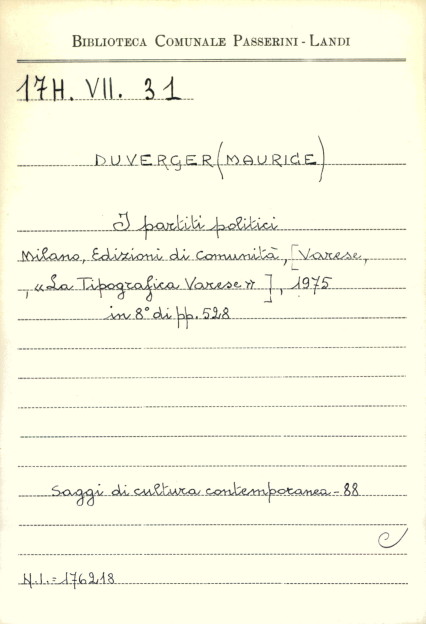 BIBLIOTECA COMUNALE PASSERINI - LANDI
17H. VII. 31
DUVERGER (MAURICE)
I partiti politici
Milano, Edizioni di comunità, [Varese,
, «La Tipografica Varese» ], 1975
in 8° di pp. 528
Saggi di cultura contemporanea - 88
N.I. = 176218